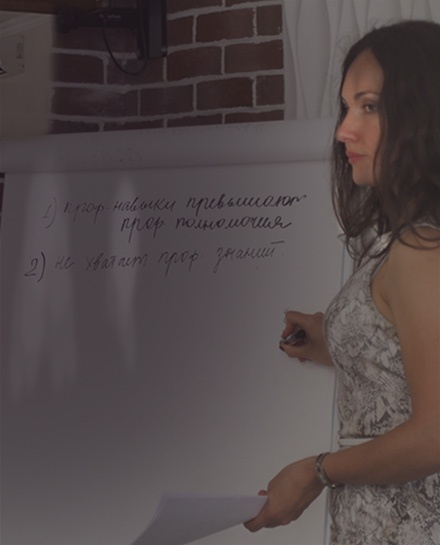 1) проф. навыки превышают
проф полномочия
2) не хватает проф знаний